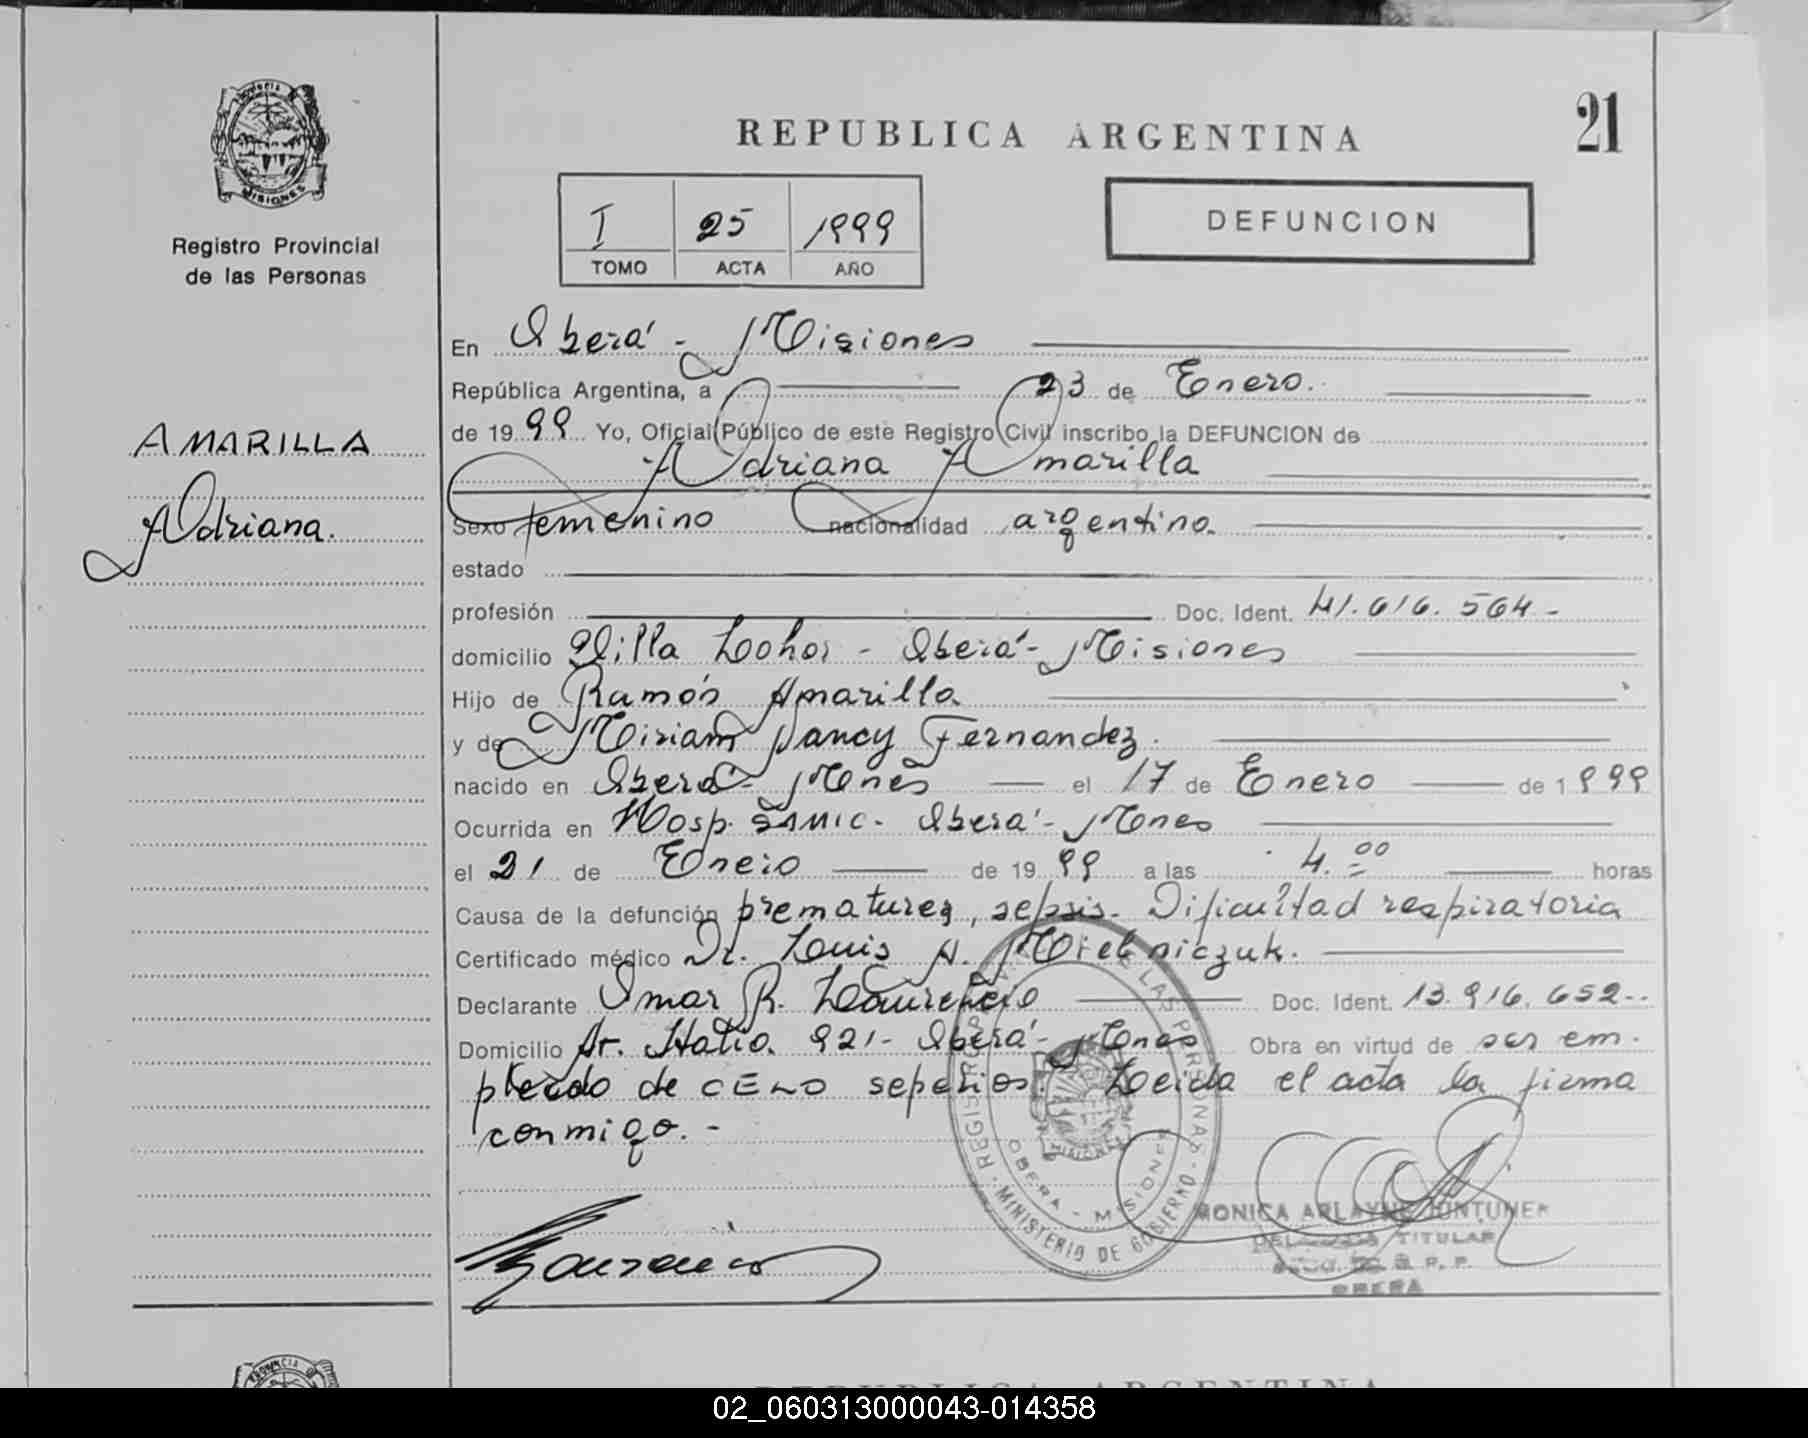 PROVINCIA DE MISIONES
Registro Provincial
de las Personas
AMARILLA
Adriana.
REPUBLICA ARGENTINA
21
I 25 1999
TOMO ACTA AÑO
DEFUNCION
En Oberá - Misiones
República Argentina, a 23 de Enero.
de 1999 Yo, Oficial Público de este Registro Civil inscribo la DEFUNCION de
Adriana Amarilla
Sexo femenino nacionalidad argentina.
estado
profesión Doc. Ident. 41.616.564-
domicilio Villa - Oberá - Misiones
Hijo de Ramón Amarilla
y de Miriam Nancy Fernandez.
nacido en Oberá - Mnes el 17 de Enero de 1999
Ocurrida en Hosp. SAMIC. Oberá - Mnes
el 21 de Enero de 1999 a las 4.00 horas
Causa de la defunción prematurez, sepsis. Dificultad respiratoria
Certificado médico Dr. Luis A.
Declarante Omar R. Doc. Ident. 13.916.652--
Domicilio Av. Italia. 921- Oberá - Mnes Obra en virtud de ser em-
pleado de CELO sepelios. Leida el acta la firma
conmigo. -
REGISTRO PROV. DE LAS PERSONAS
MISIONES
OBERA - MISIONES
MINISTERIO DE GOBIERNO
MONICA
TITULAR
R. P. P.
OBERA
PROVINCIA
REPUBLICA ARGENTINA
02_060313000043-014358